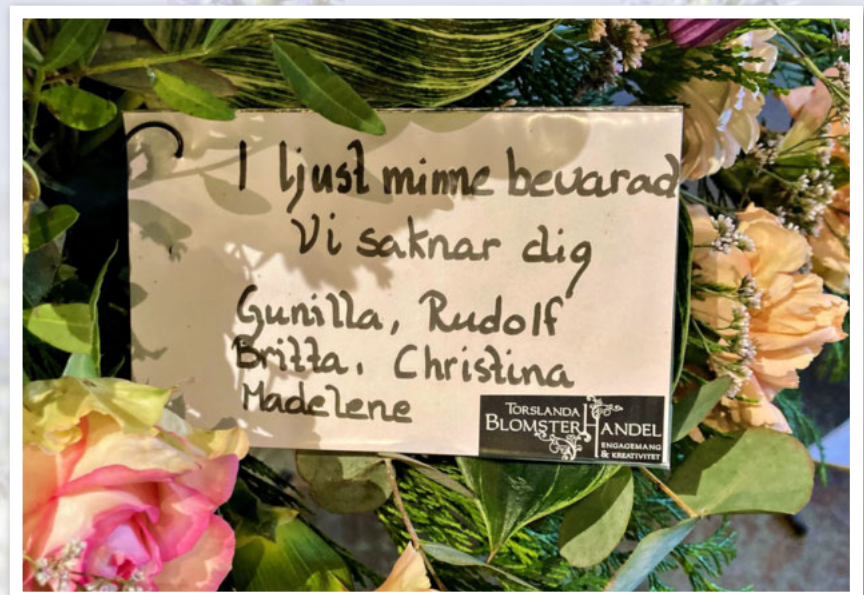 I ljust minne bevarad
Vi saknar dig
Gunilla, Rudolf
Britta, Christina
Madelene
TORSLANDA
BLOMSTERHANDEL
ENGAGEMANG
& KREATIVITET